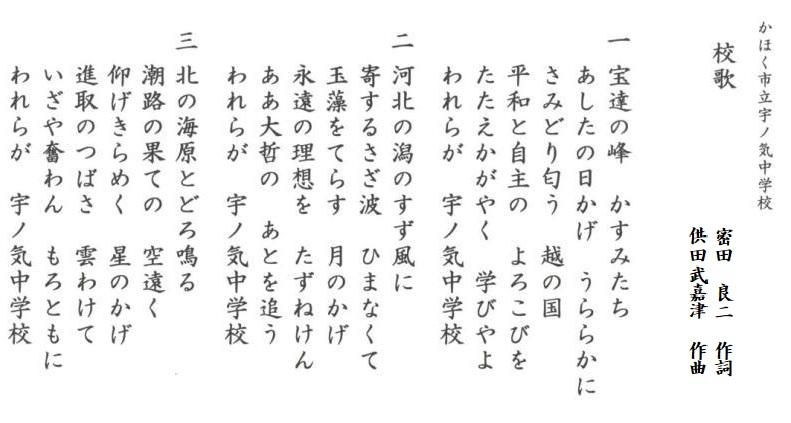 かほく市立宇ノ気中学校
校歌
密田 良二 作詞
供田武嘉津 作曲
一 宝達の峰 かすみたち
あしたの日かげ うららかに
さみどり匂う 越の国
平和と自主の よろこびを
たたえかがやく 学びやよ
われらが 宇ノ気中学校
二 河北の潟のすず風に
寄するさざ波 ひまなくて
玉藻をてらす 月のかげ
永遠の理想を たずねけん
ああ大哲の あとを追う
われらが 宇ノ気中学校
三 北の海原とどろ鳴る
潮路の果ての 空遠く
仰げきらめく 星のかげ
進取のつばさ 雲わけて
いざや奮わん もろともに
われらが 宇ノ気中学校